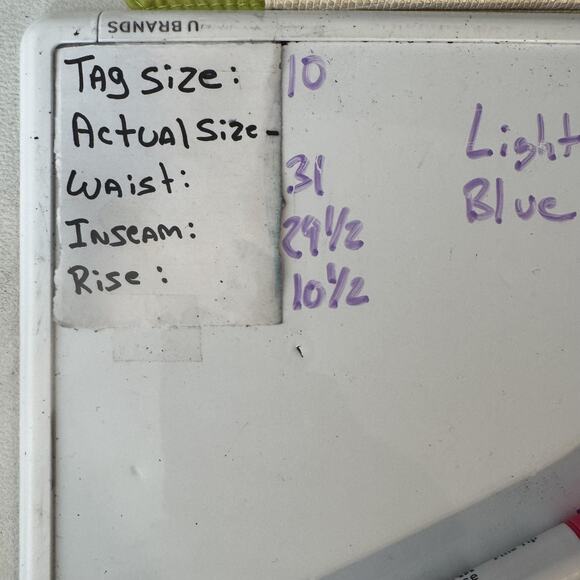 U BRANDS
Tag Size: 10
Actual Size-
Waist: 31
Inseam: 29 1/2
Rise: 10 1/2
Light
Blue